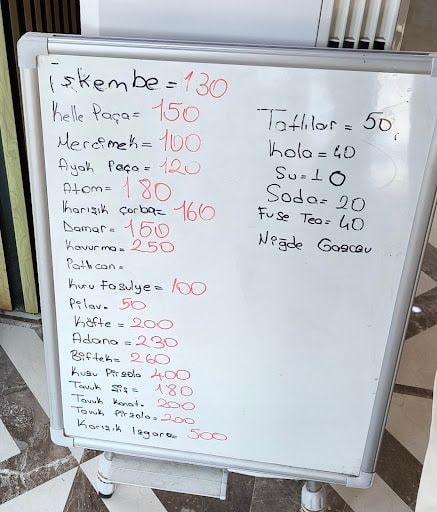 işkembe = 130
Kelle Paça = 150
Mercimek = 100
Ayak Paça = 120
Atom = 180
Karışık Çorba = 160
Damar = 150
Kavurma = 250
Patlıcan =
Kuru Fasulye = 100
Pilav = 50
Köfte = 200
Adana = 230
Biftek = 260
Kuzu Pirzola 400
Tavuk Şiş = 180
Tavuk Kanat = 200
Tavuk Pirzola = 200
Karışık Izgara = 500
Tatlılar = 50,
Kola = 40
Su = 10
Soda = 20
Fuse Tea = 40
Niğde Gazozu